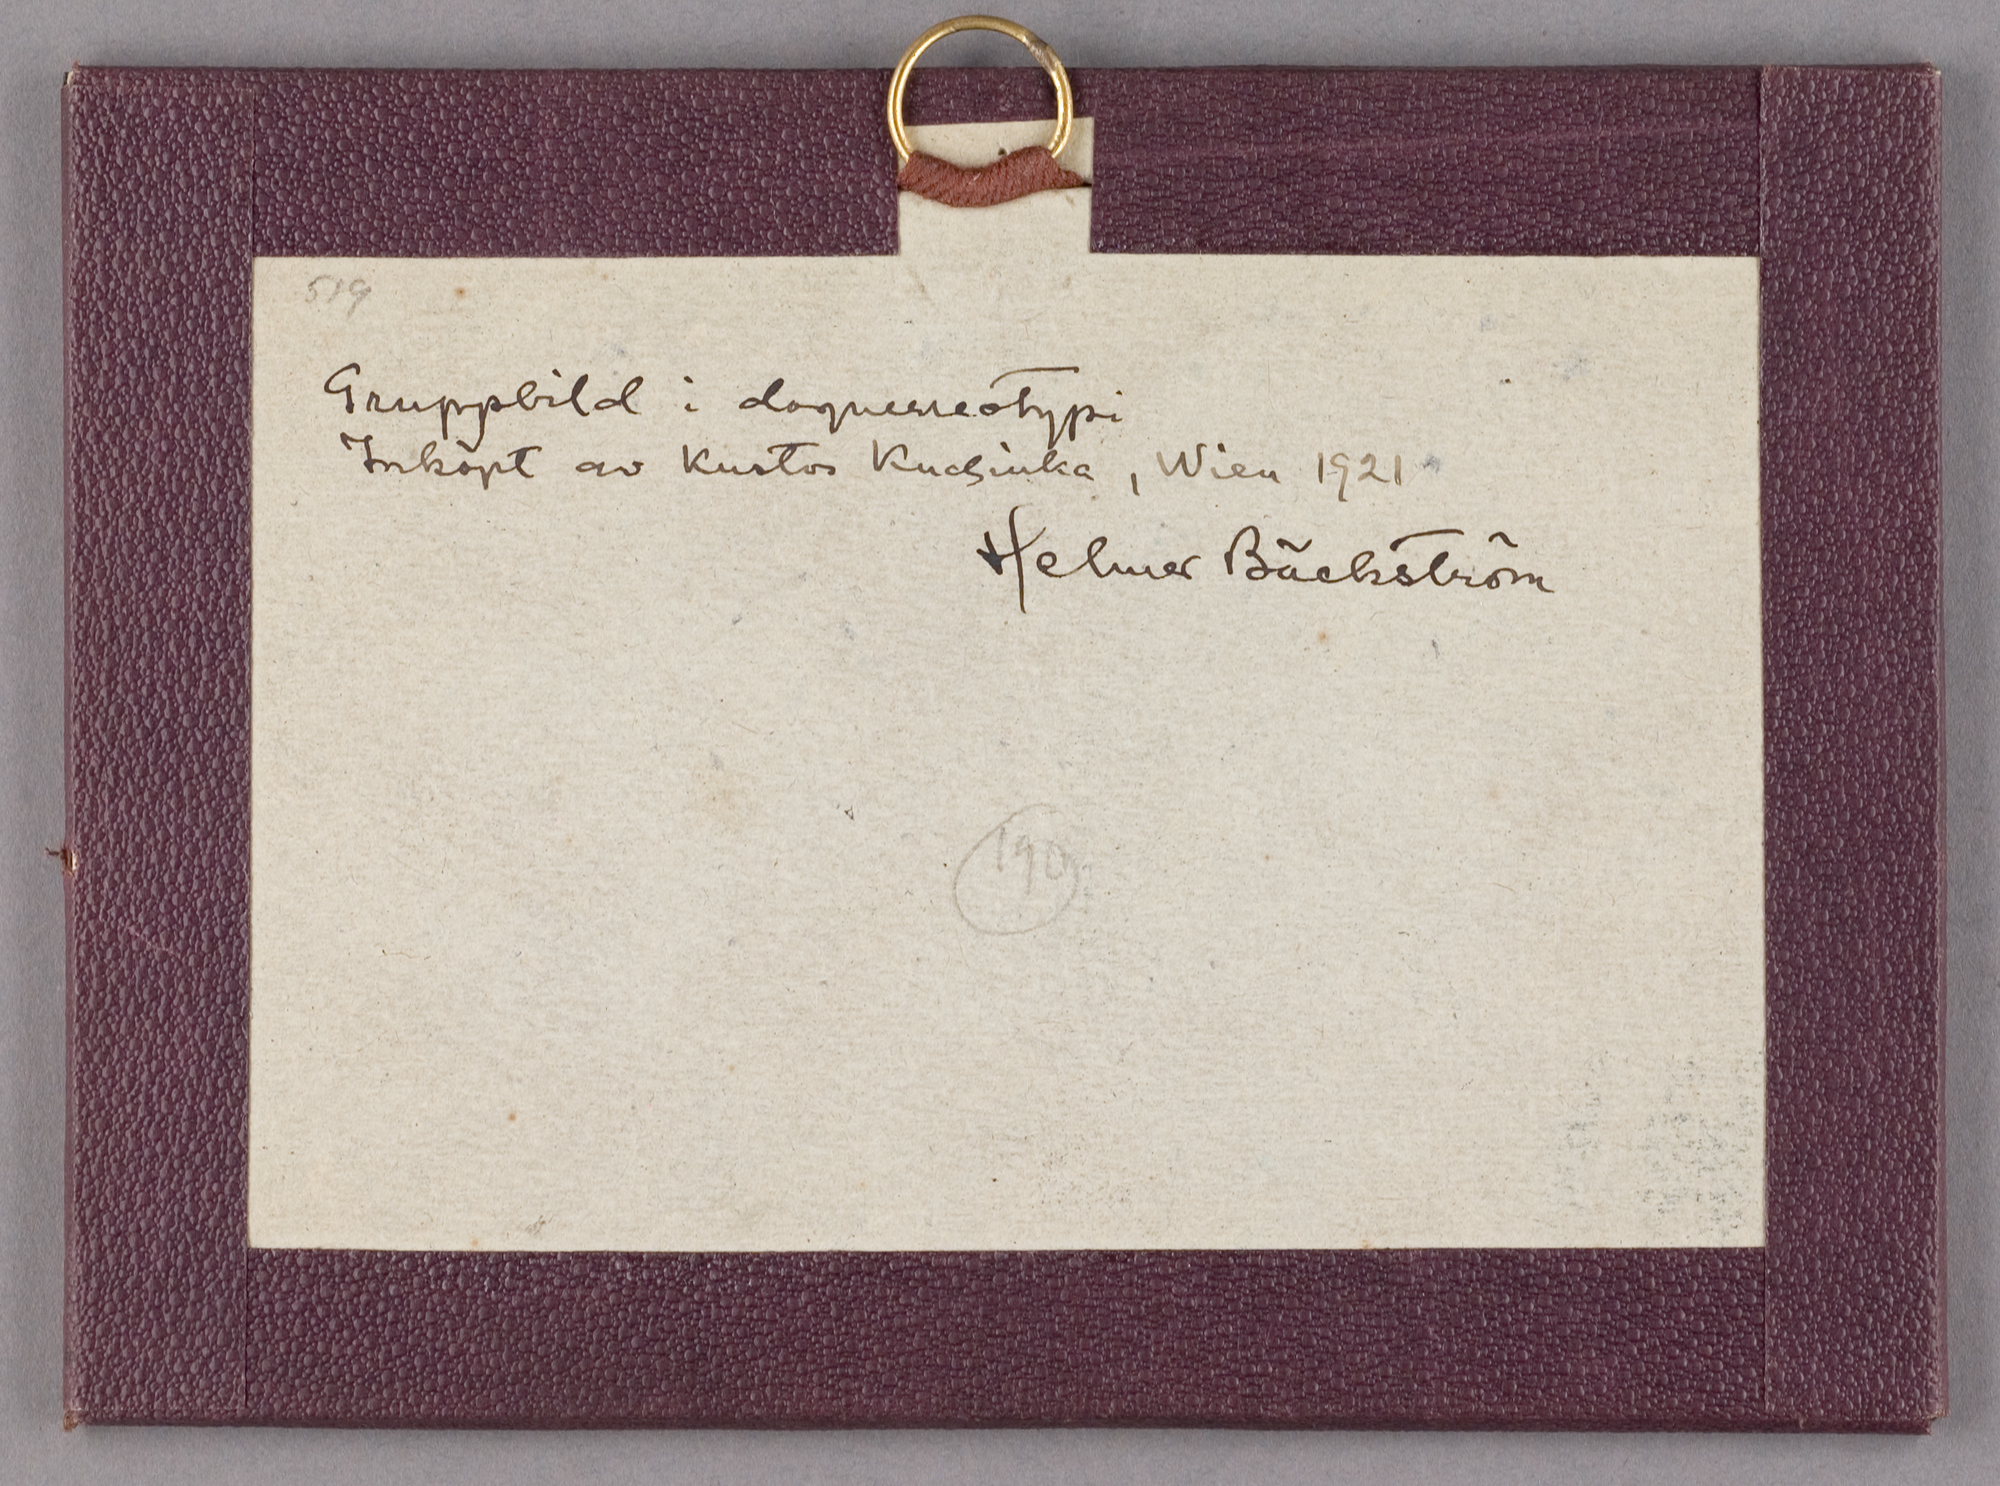 519
Gruppbild i daguerreotypi
Inköpt av Kustos Kudzinka, Wien 1921
Helmer Bäckström
190